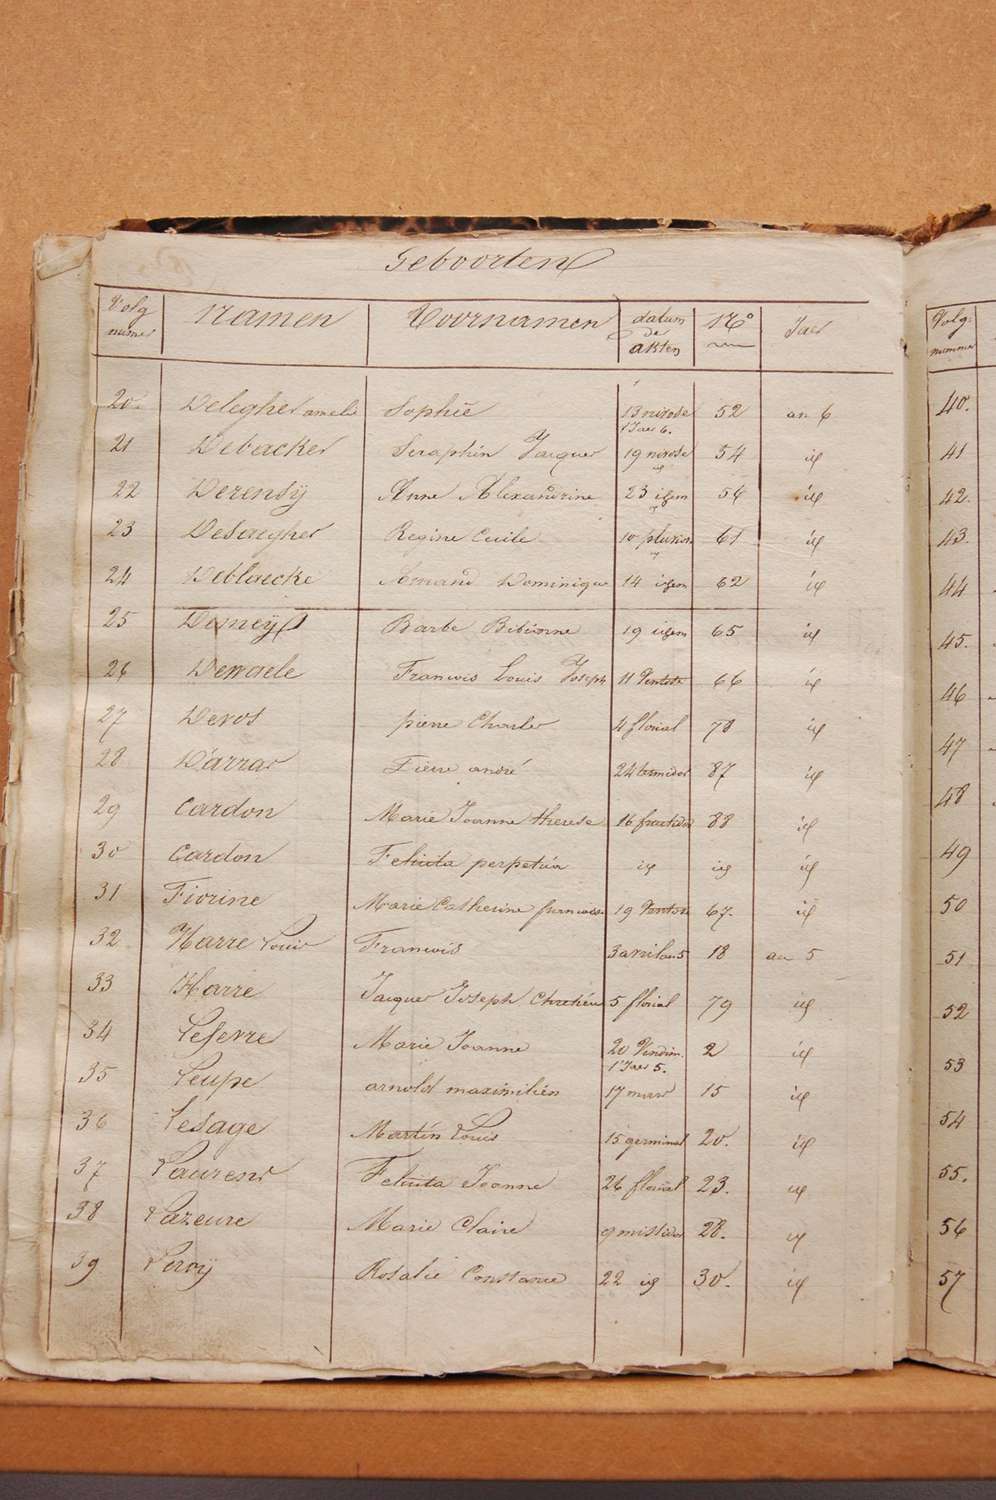 Geboorten
Volg numer Namen Voornamen datum de akten No Jaer
20. Deleghe amelie Sophie 13 nivose 52 an 6
1 Jaer 6.
21 Debacker Seraphin Jacques 19 nivose 54 id
22 Derensÿ Anne Alexandrine 23 idem 54 id
23 Desaegher Regine Cecile 10 pluvios 61 id
24 Deblaecke Amand Dominique 14 idem 62 id
25 Demeÿ Barbe Bibienne 19 idem 65 id
26 Dewaele Francois Louis Joseph 11 Ventose 66 id
27 Devos pierre Charles 4 florial 78 id
28 Darras Pierre andré 24 termidor 87 id
29 Cardon Marie Joanne therese 16 fructidor 88 id
30 Cardon Felicita perpetua id id id
31 Fiorine Marie Catherine francoise 19 Ventose 67. id
32 Harre Louis Francois 3 avril an 5 18 an 5
33 Harre Jacques Joseph Chretien 5 florial 79 id
34 Lefevre Marie Joanne 20 Vendim. 2 id
1 Jaer 5.
35 Leupe arnold maximilien 17 mars 15 id
36 Lesage Martin Louis 15 germinal 20. id
37 Laurens Felicita Joanne 26 florial 23. id
38 Lazeure Marie Claire 9 messidor 28. id
39 Leroÿ Rosalie Constance 22 id 30. id
Volg. nummer
40.
41
42.
43.
44
45.
46
47
48
49
50
51
52
53
54
55.
56
57